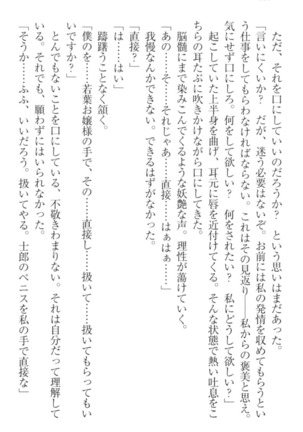 ただ、それを口にしていいのだろうか？　という思いはまだある。
「言いにくいか？　だが、迷う必要はないぞ。お前には私の発情を収めてもらうとい
う仕事をしてもらわなければならない。これはその見返り――私からの褒美と思え。
気にせず口にしろ。何をして欲しい？　何をされたい？　私にどうして欲しい？」
起こしていた上半身を曲げ、耳元に唇を近付けてくる。そんな状態で熱い吐息をこ
ちらの耳たぶに吹きかけながら口にしてきた。
脳髄にまで染みこんでくるような妖艶な声。理性が蕩けていく。
我慢なんかできない。できるはずがなかった。
「あの……そ……それじゃあ……直接……はぁはぁ……」
「直接？」
「は……はい」
躊躇うことなく頷く。
「僕のを……若葉お嬢様の手で、その……直接し……扱いて……扱いてもらってもいい
いですか？」
とんでもないことを口にしている、不敬きわまりない。それは自分だって理解して
いる。それでも、願わずにはいられなかった。
「そうか……ふふ、いいだろう。扱いてやる。士郎のペニスを私の手で直接な」